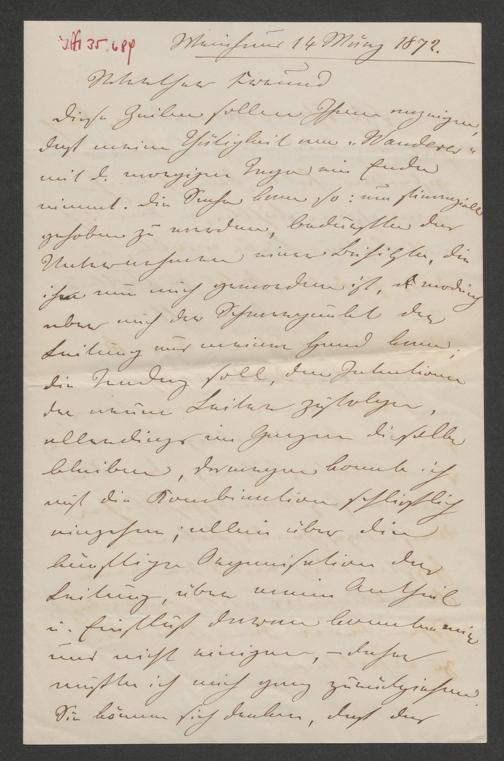 14 März 1872.
Verehrter Freund
diese Zeilen sollen Ihnen anzeigen,
daß meine Thätigkeit am „Wanderer"
mit d. morgigen Tage ein Ende
nimmt. Die Sache kam so: um finanziell
gehoben zu werden, bedurfte das
Unternehmen einer Beihilfe, die
ihm nun auch geworden ist,
aber auch der Schwerpunkt der
Leitung aus meiner Hand kam;
die Tendenz soll, den Intentionen
der neuen Leiter zufolge,
allerdings im Ganzen dieselbe
bleiben, deswegen konnte ich
auf die Kombination schließlich
eingehen; allein über die
künftige Organisation der
Leitung, über meinen Antheil
u. Einfluß daran konnten wir
uns nicht einigen, – daher
mußte ich mich ganz zurückziehen.
Sie können sich denken, daß der